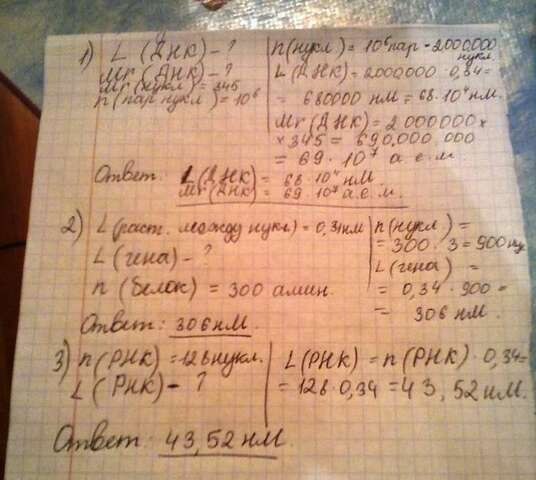 1) L (ДНК) - ?
Mr (ДНК) - ?
Mr (нукл) = 345
n (пар нукл) = 10⁶
n (нукл) = 10⁶ пар = 2000000
нукл.
L (ДНК) = 2000000 · 0,34 =
= 680000 нм = 68 · 10⁴ нм.
Mr (ДНК) = 2 000000 ×
× 345 = 690.000 000
= 69 · 10⁷ а.е.м.
Ответ: L (ДНК) = 68 · 10⁴ нм
Mr (ДНК) = 69 · 10⁷ а.е.м.
2) L (раст. между нукл) = 0,34нм
L (гена) - ?
n (белок) = 300 амин.
Ответ: 306 нм.
n (нукл) =
= 300 · 3 = 900 нук
L (гена) =
= 0,34 · 900 =
= 306 нм.
3) n (РНК) = 128 нукл.
L (РНК) - ?
L (РНК) = n (РНК) · 0,34 =
= 128 · 0,34 = 43,52 нм.
Ответ: 43,52 нм.